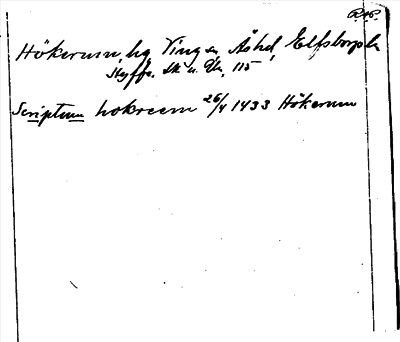 Hökerum, hg Vings sn, Åshd, Elfsborgs l.
Styffe. Sk. u. Un. 115
Scriptum hokreem 26/4 1433 Hökerum